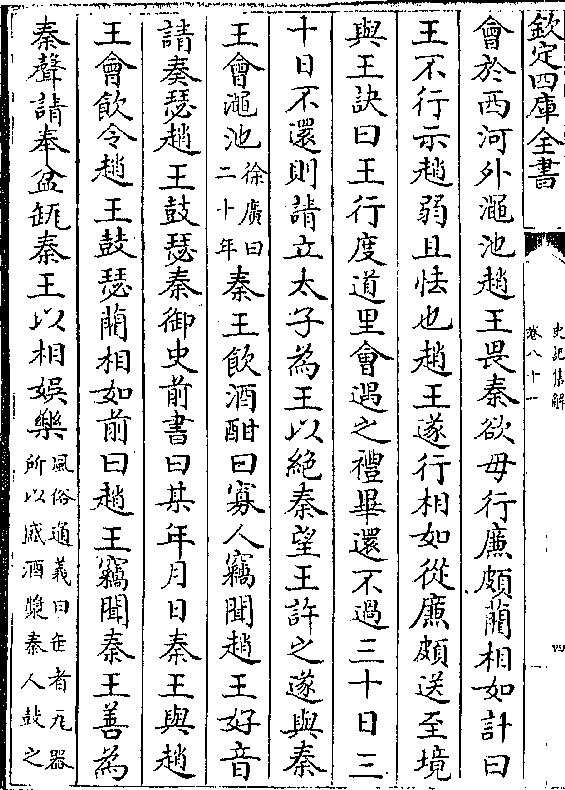 欽定四庫全書
史記集解
卷八十一
會於西河外澠池趙王畏秦欲毋行廉頗藺相如計曰
王不行示趙弱且怯也趙王遂行相如從廉頗送至境
與王訣曰王行度道里會遇之禮畢還不過三十日三
十日不還則請立太子為王以絶秦望王許之遂與秦
王會澠池徐廣曰二十年秦王飲酒酣曰寡人竊聞趙王好音
請奏瑟趙王鼓瑟秦御史前書曰某年月日秦王與趙
王會飲令趙王鼓瑟藺相如前曰趙王竊聞秦王善為
秦聲請奉盆缻秦王以相娛樂風俗通義曰缶者瓦器所以盛酒漿秦人鼓之